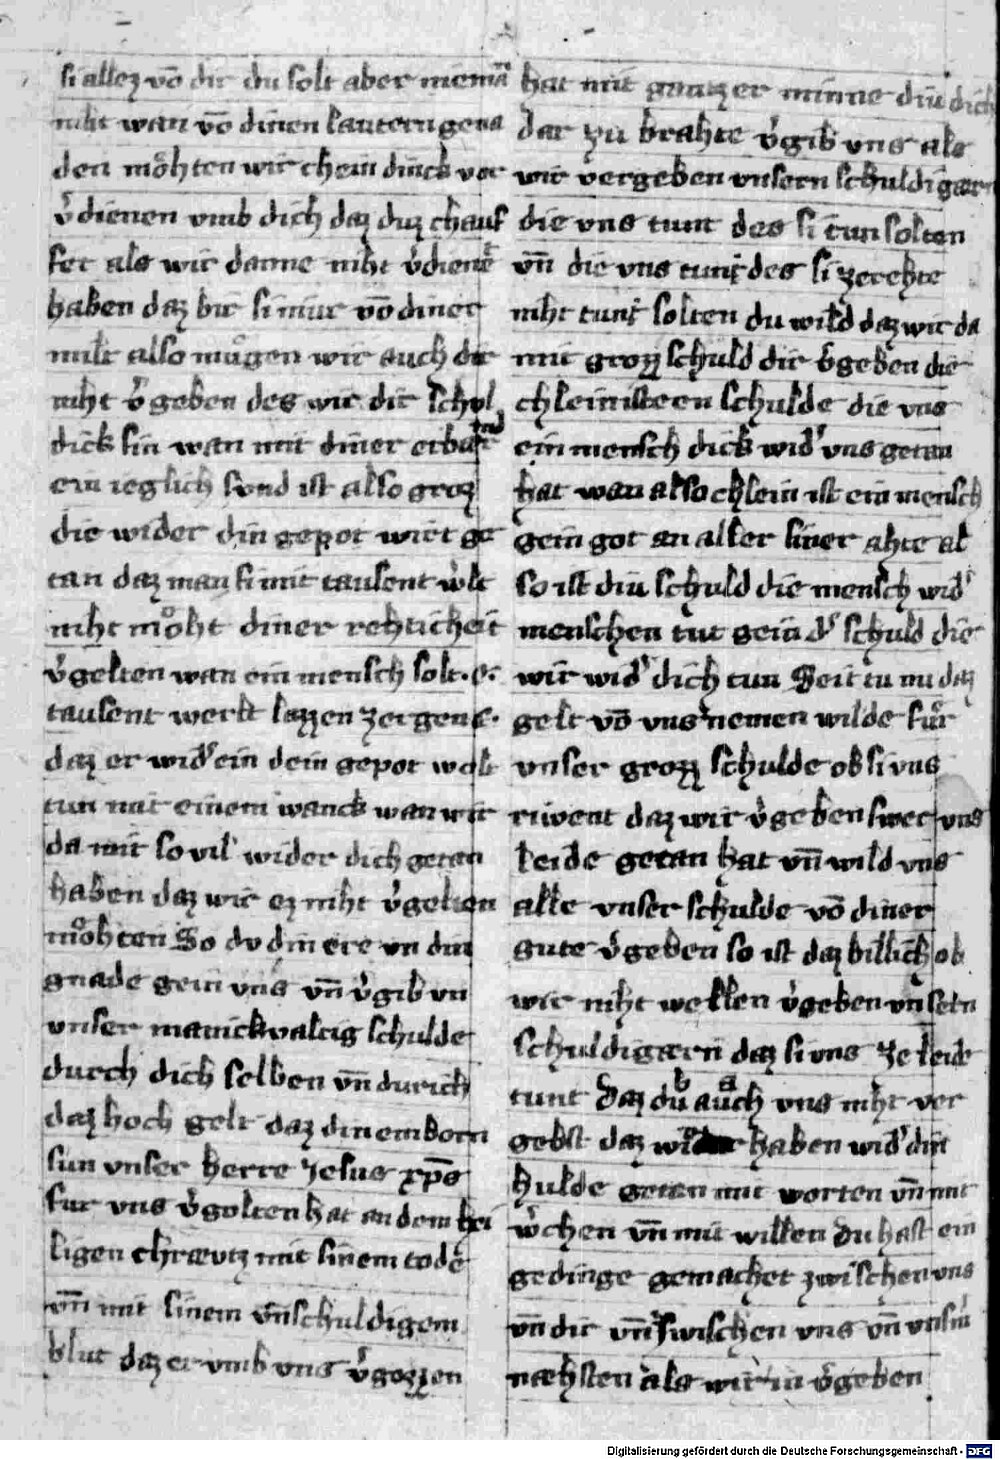 si allez võ dir du solt aber niemã
niht wan võ dinen lautern gena
den moͤhten wir chein dinck ver
v̾dienen vmb dich daz duz chauf
fet als wir danne niht v̾dienẽ
haben daz bir si nuͤr võ diner
milt also muͤgen wir auch dir
niht v̾geben des wir dir schol
dick sin wan mit diner erbar
ein ieglich sund ist also groz
die wider din gepot wirt ge
tan daz man si mit tausent w̾lt
niht moͤht diner rehticheit
v̾gelten wan ein mensch solt. e.
tausent werlt lazzen zergen e.
daz er wid̾ ein dein gepot wolt
tun mit einem wanck wan wir
da mit so vil wider dich getan
haben daz wir ez niht v̾gelten
moͤhten So du din ere vn din
gnade gein vns vñ v̾gib vn
vnser manickvaltig schulde
durch dich selben vñ durich
daz hoch gelt daz din einborn
sun vnser herre Jesus xp̄s
fur vns v̾golten hat an dem hei
ligen chræutz mit sinem tode
vñ mit sinem vnschuldigem
blut daz er vmb vns v̾gozzen
hat mit gantzer minne diu dich
dar zu brahte v̾gib vns als
wir vergeben vnsern schuldigærn
die vns tunt des si tun solten
vñ die vns tunt des si ze rehte
niht tunt solten du wild daz wir da
mit grozz schuld dir v̾geben die
chleinisteen schulde die vns
ein mensch dick wid̾ vns getan
hat wan also chlein ist ein mensch
gein got an aller siner ahte al
so ist diu schuld die mensch wid̾
menschen tut gein d̾ schuld die
wir wid̾ dich tun Seit tu nu daz
gelt võ vns nemen wilde fuͤr
vnser grozz schulde ob si vns
riwent daz wir v̾geben swer vns
leide getan hat vñ wild vns
alle vnser schulde võ diner
gute v̾geben so ist daz billich ob
wir niht wellen v̾geben vnsern
schuldigærn daz si vns ze leide
tunt Daz du auch vns niht ver
gebst daz wir haben wid̾ din
hulde getan mit worten vñ mit
w̾chen vñ mit willen Du hast ein
gedinge gemachet zwischen vns
vñ dir vñ swischen vns vñ vnsin̾
næhsten als wir in v̾geben
Digitalisierung gefördert durch die Deutsche Forschungsgemeinschaft - DFG